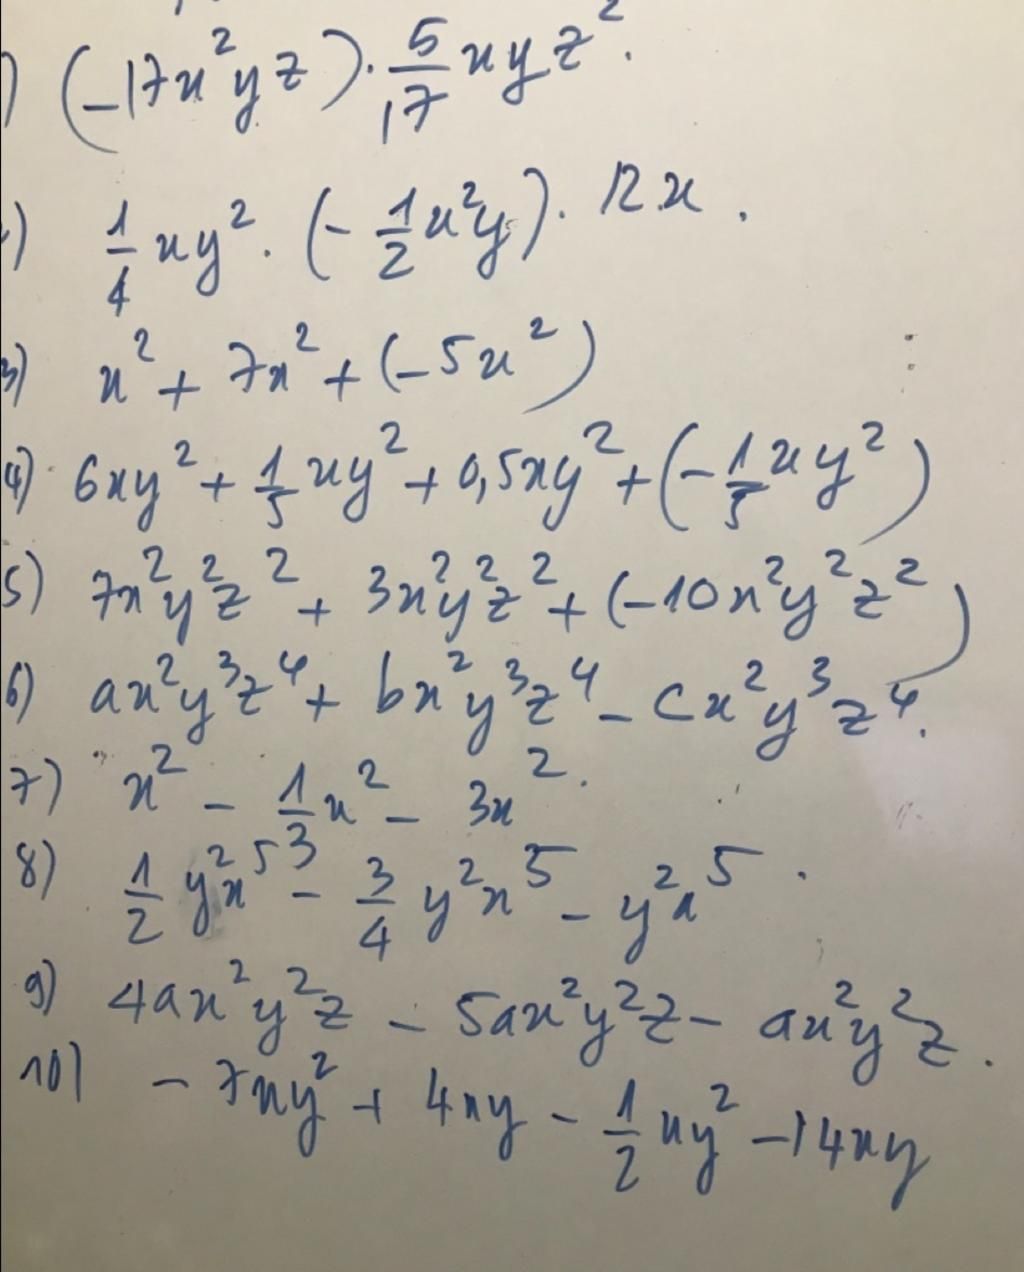 ) (-17x²yz) · 5/17 xyz².
) 1/4 xy² · (-1/2 x²y) · 12x.
3) x² + 7x² + (-5x²)
4) 6xy² + 1/5 xy² + 0,5xy² + (-1/5 xy²)
5) 7x²y²z² + 3x²y²z² + (-10x²y²z²)
6) ax²y³z⁴ + bx²y³z⁴ - cx²y³z⁴.
7) x² - 1/3 x² - 3x².
8) 1/2 y²x⁵ - 3/4 y²x⁵ - y²x⁵.
9) 4ax²y²z - 5ax²y²z - ax²y²z.
10) - 7xy² + 4xy - 1/2 xy² - 14xy